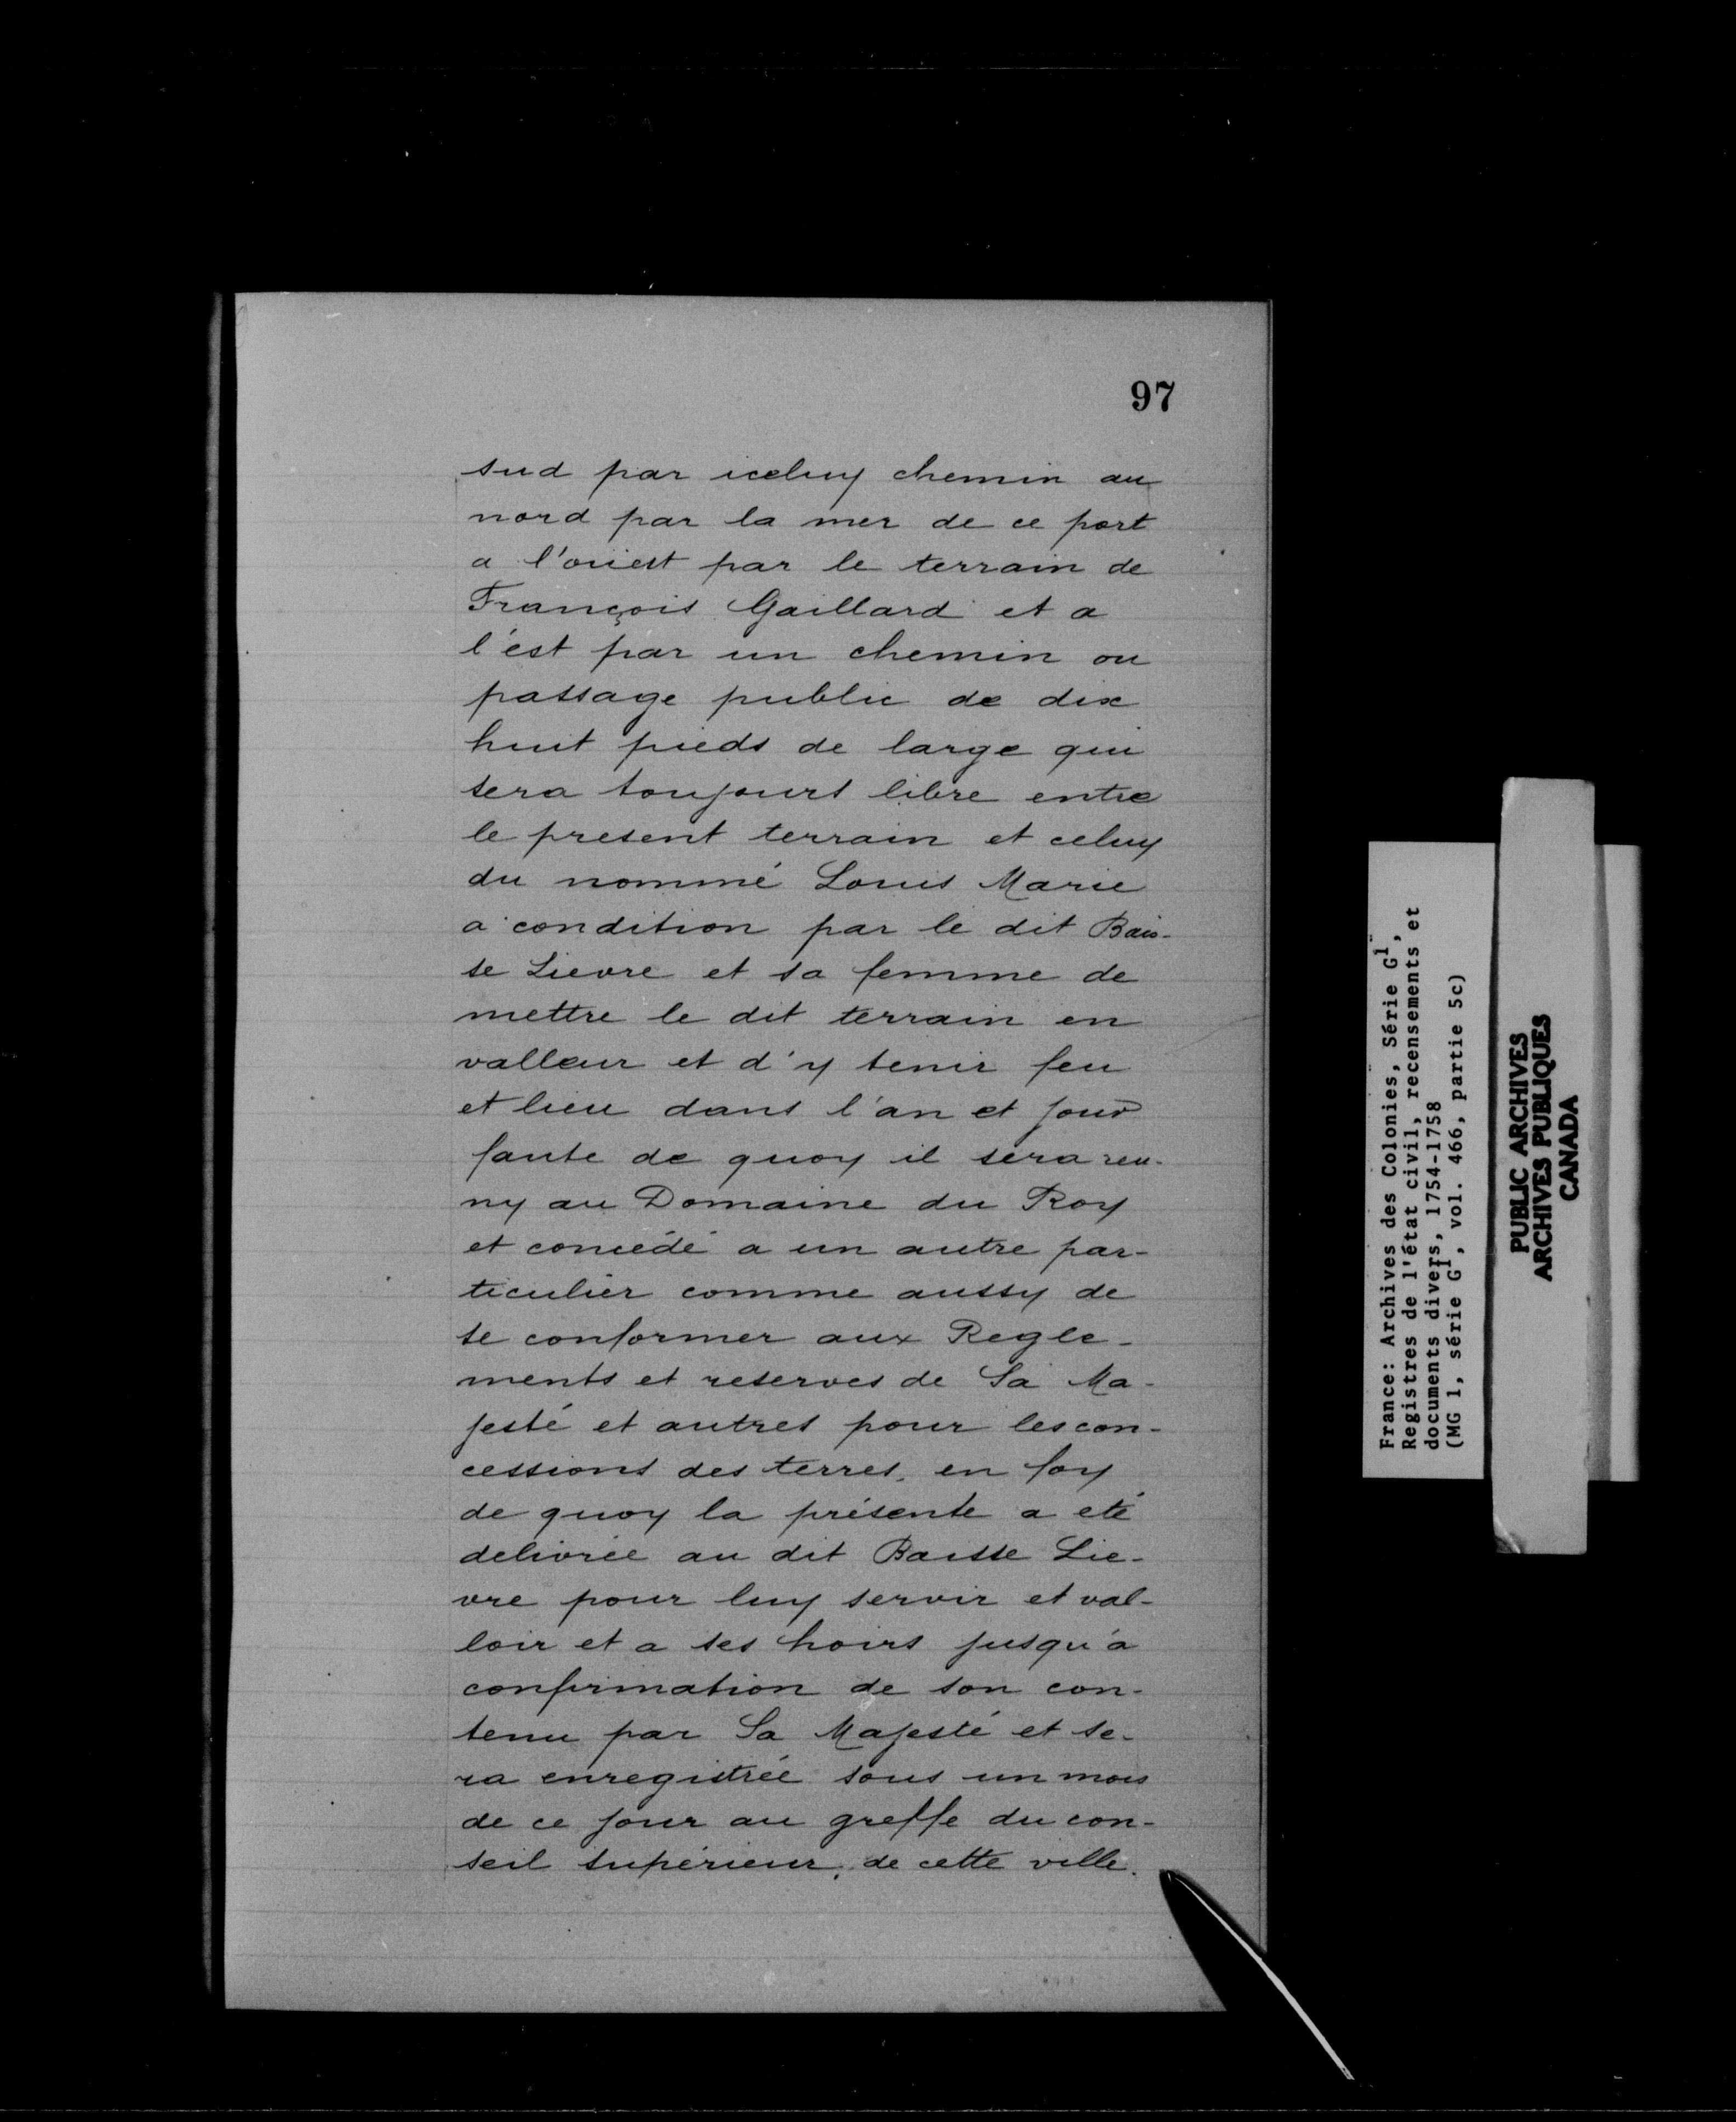 97
sud par iceluy chemin au
nord par la mer de ce port
a l'ouest par le terrain de
François Gaillard et a
l'est par un chemin ou
passage public de dix
huit pieds de large qui
sera toujours libre entre
le present terrain et celuy
du nommé Louis Marie
a condition par le dit Bais-
se Lievre et sa femme de
mettre le dit terrain en
valleur et d'y tenir feu
et lieu dans l'an et jour
faute de quoy il sera reu-
ny au Domaine du Roy
et concédé a un autre par-
ticulier comme aussy de
se conformer aux Regle-
ments et reserves de Sa Ma-
jesté et autres pour les con-
cessions des terres, en foy
de quoy la présente a eté
delivrée au dit Baisse Lie-
vre pour luy servir et val-
loir et a ses hoirs jusqu'a
confirmation de son con-
tenu par Sa Majesté et se-
ra enregistrée sous un mois
de ce jour au greffe du con-
seil supérieur, de cette ville.
France: Archives des Colonies, Série G1,
Registres de l'état civil, recensements et
documents divers, 1754-1758
(MG 1, série G1, vol. 466, partie 5c)
PUBLIC ARCHIVES
ARCHIVES PUBLIQUES
CANADA